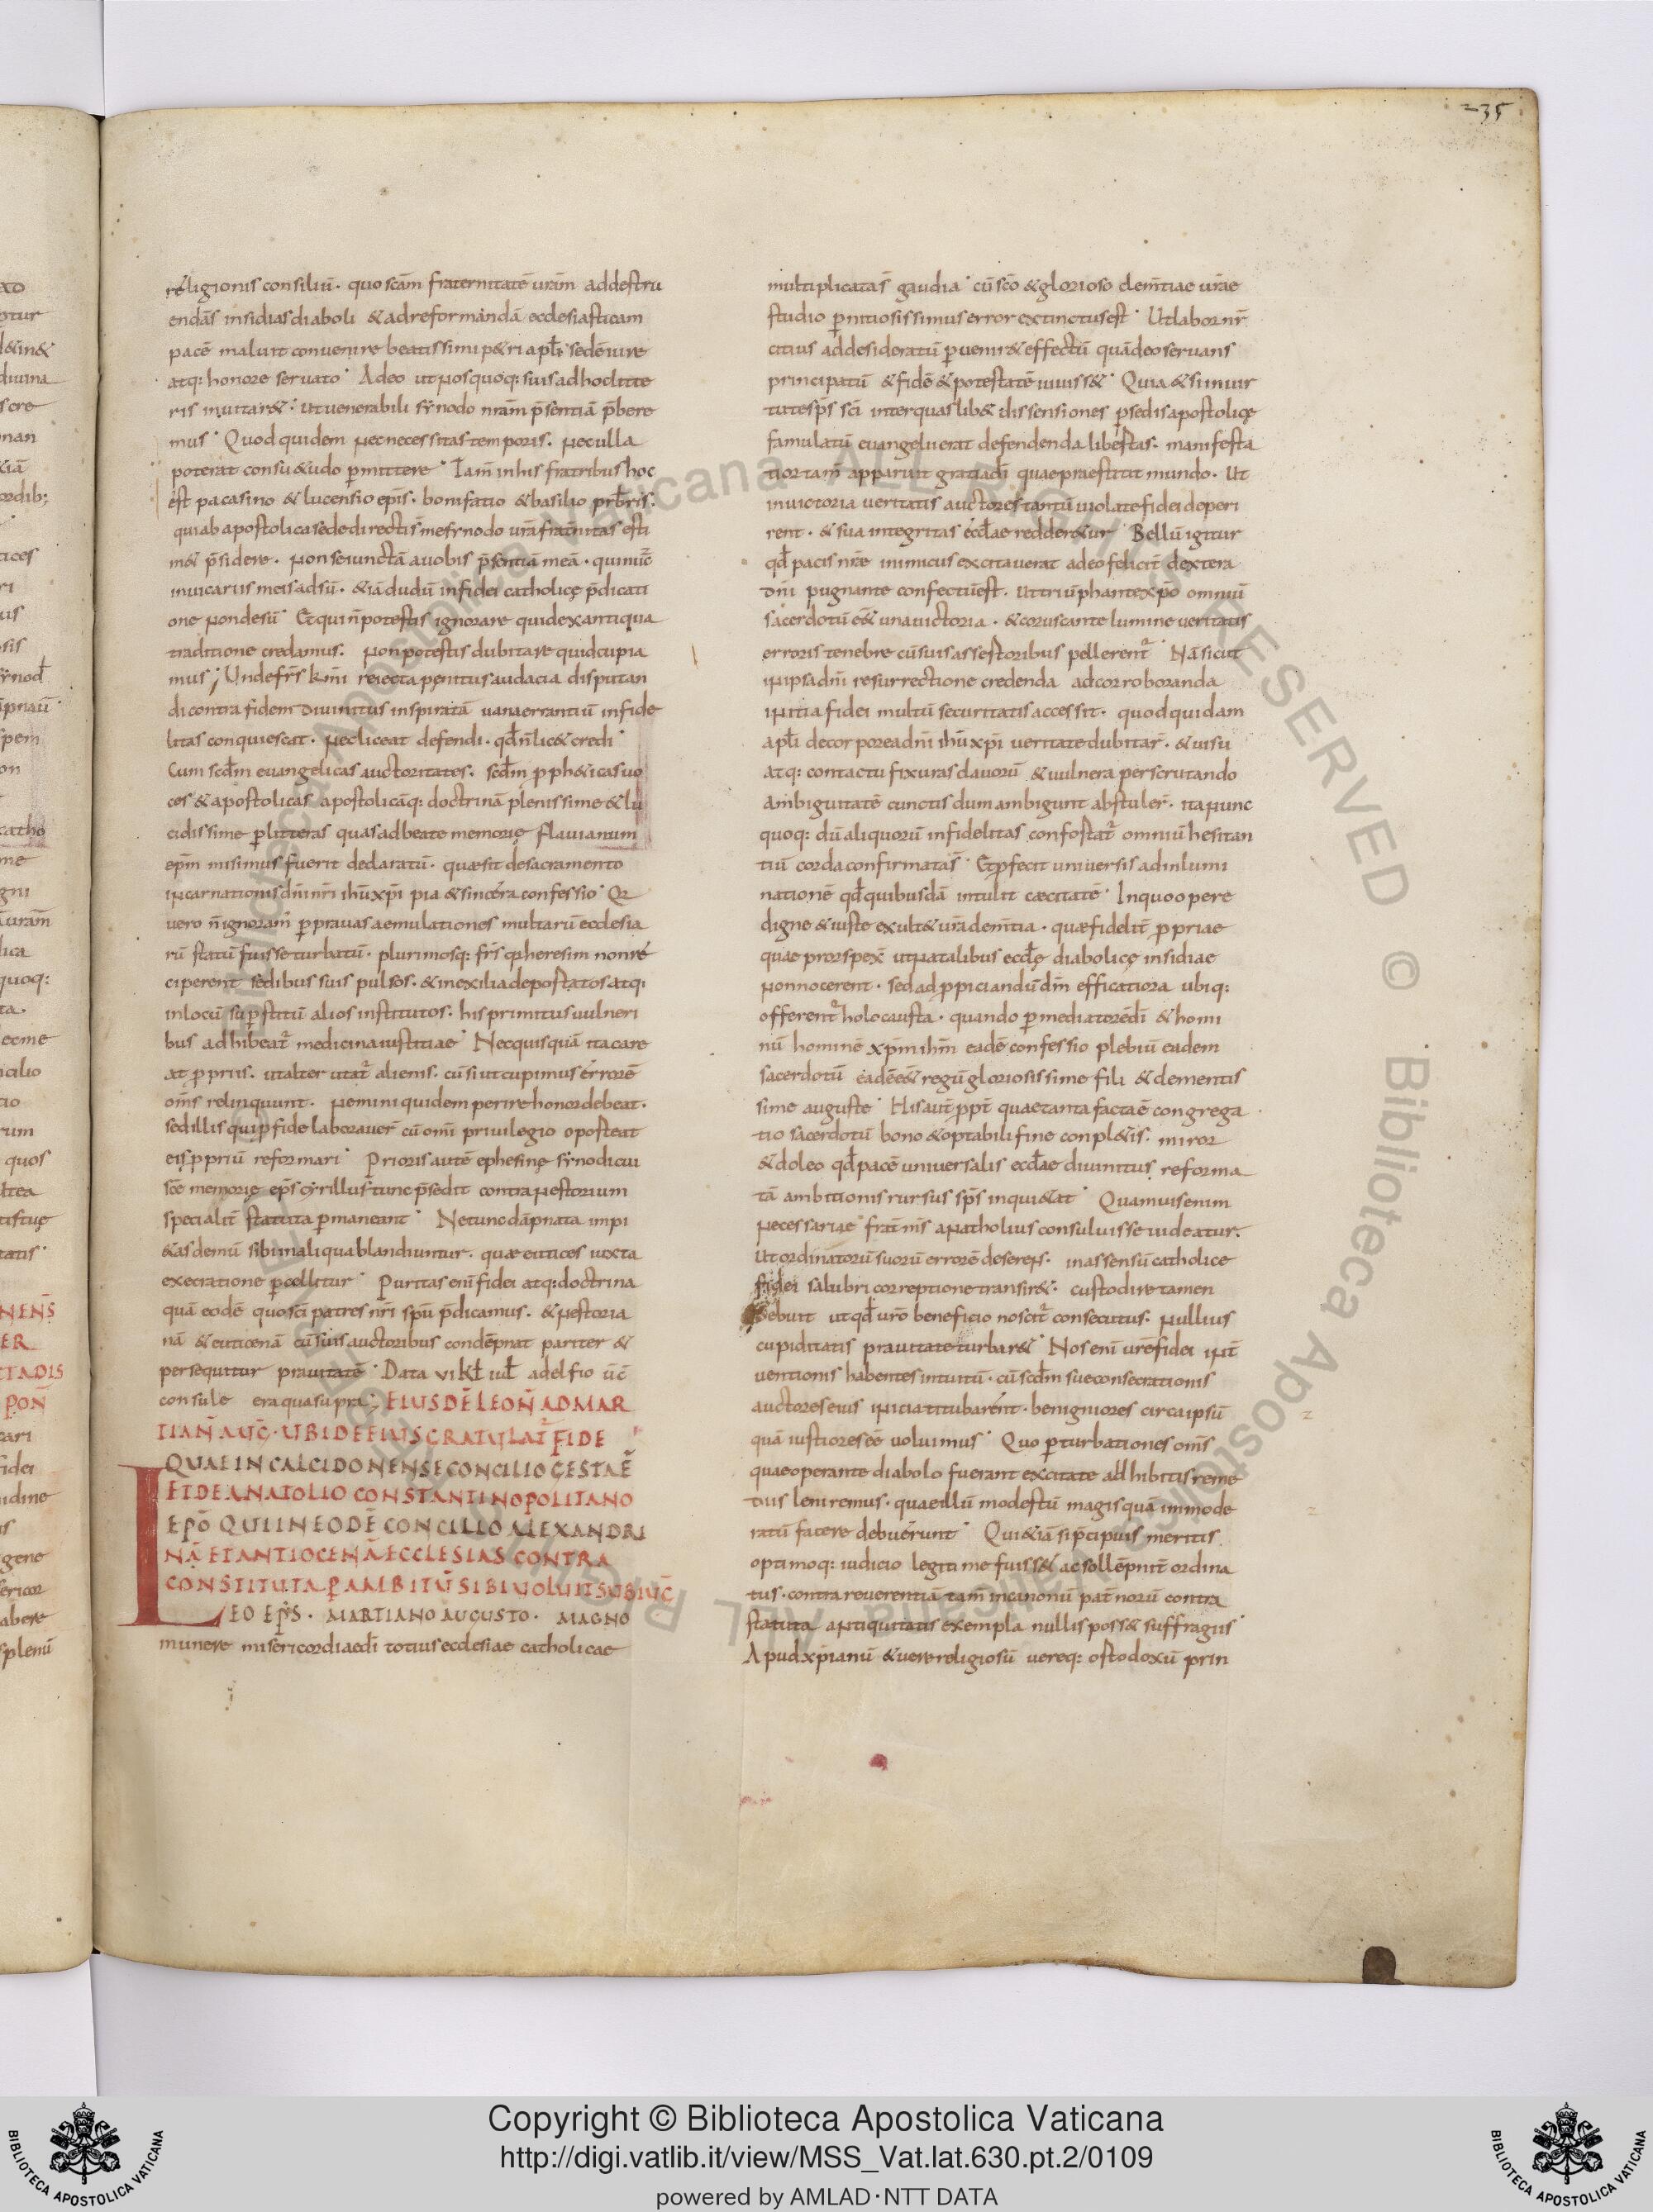 235
religionis consiliū· quo scām fraternitatē urām ad destru
endās insidias diaboli & ad reformandā ecclesiasticam
pacē maluit conuenire beatissimi p&ri apłi sedē iure
atq: honore seruato· Adeo ut nos quoq: suis ad hoc litte
ris inuitar&· ut uenerabili synodo nrām p̄sentiā p̄bere
mus· Quod quidem nec necessitas temporis· nec ulla
poterat consu&udo p̱mittere· Tam̄ in his fratribus hoc
est pacasino & lucensio ep̄is· bonifatio & basilio prb̄ris·
qui ab apostolica sede directi s̄ me synodo ur̄a frat̄nitas esti
m& p̄sidere· non seiunctā a uobis p̄sentiā meā· qui nūc̄
in uicariis meis adsū· & iā dudū in fidei catholicę p̄dicati
one non desū· Et qui n̄ potestis ignorare quid ex antiqua
traditione credamus· non potestis dubitare quid cupia
mus; Unde fr̄s km̄i reiecta penitus audacia disputan
di contra fidem diuinitus inspiratā uana errantiū infide
litas conquiescat· nec liceat defendi· qd̄ n̄ lic& credi·
Cum scd̄m euangelicas auctoritates· scd̄m p̱ph&icas uo
ces & apostolicas apostolicāq: doctrinā plenissime & lu
cidissime p̱ litteras quas ad beate memorię flauianum
ep̄m misimus fuerit declaratū· quæ sit de sacramento
incarnationis dn̄i nr̄i ih̄u xp̄i pia & sincera confessio· Q̄
uero n̄ ignoram̄ p̱ prauas aemulationes multarū ecclesia
rū statū fuisse turbatū· plurimosq: fr̄s qp heresim non re
ciperent sedibus suis pulsos· & in exilia deportatos atq:
in locū sup̱stitū alios institutos· his primitus uulneri
bus adhibeat̄ medicina iustitiae· Nec quisquā ita care
at p̱priis· ut alter utat̄ alienis· cū si ut cupimus errorē
om̄s relinquunt· nemini quidem perire honor debeat·
sed illis qui p̱ fide laborauer̄ cū om̄i priuilegio oporteat
eis p̱priū reformari· Prioris autē ephesinę synodi cui
sc̄e memorię ep̄s cyrillus tunc p̄sedit contra nestorium
specialit̄ statuta p̱maneant· Ne tunc dāpnata impi
&as demū sibi in aliqua blandiuntur· quæ eutices iuxta
execratione p̱cellitur· Puritas eni fidei atq: doctrina
quā eodē quo sc̄i patres nr̄i sp̄u p̄dicamus· & nestoria
nā & euticenā cū suis auctoribus condēpnat pariter &
persequitur prauitatē· Data vi kł iuł adelfio ūc̄
consule era qua supra; EIUSDĒ LEON̄ AD MAR
TIAN̄ AUḠ· UBI DE EIUS GRATULAT̄ FIDE
QUAE IN CALCIDONENSE CONCILIO GESTA Ē
ET DE ANATOLIO CONSTANTINOPOLITANO
EPŌ QUI IN EODĒ CONCILIO ALEXANDRI
NĀ ET ANTIOCENĀ ECCLESIAS CONTRA
CONSTITUTA P̱ AMBITŪ SIBI UOLUIT SUBIUḠ
LEO EP̄S· MARTIANO AUGUSTO· MAGNO
munere misericordiae dī totius ecclesiae catholicae
multiplicata s̄ gaudia· cū sc̄o & glorioso clem̄tiae ur̄ae
studio p̱nitiosissimus error extinctus est· Ut labor nr̄
citius ad desideratū p̱uenir& effectū quā deo seruans
principatū & fidē & potestatē iuuiss&· Quia & si in uir
tute sp̄s sc̄i inter quaslib& dissensiones p̱ sedis apostolicę
famulatū euangelii erat defendenda libertas· manifesta
tior tam̄ apparuit gratia dī quae praestitit mundo· Ut
in uictoria ueritatis auctores tantū uiolate fidei deperi
rent· & sua integritas eccl̄ae redder&ur· Bellū igitur
qd̄ pacis nr̄e inimicus excitauerat adeo felicit̄ dextera
dn̄i pugnante confectū est· ut triūphante xp̄o omniū
sacerdotū e&̄ una uictoria· & coruscante lumine ueritatis
erroris tenebre cū suis assertoribus pellerent̄· Nā sicut
in ipsa dn̄i resurrectione credenda ad corroboranda
initia fidei multū securitatis accessit· quod quidam
apłi de corporea dn̄i ih̄u xp̄i ueritate dubitar̄· & uisu
atq: contactu fixuras clauorū & uulnera perscrutando
ambiguitatē cunctis dum ambigunt abstuler̄· ita nunc
quoq: dū aliquorū infidelitas confostat̄ omniū hesitan
tiū corda confirmata s̄· Et p̱fecit uniuersis ad inlumi
nationē qd̄ quibusdā intulit cæcitatē· In quo opere
digne & iuste exult& ur̄a clem̄tia· quæ fidelit̄ p̱priae
quæ prorspex̄ ut natalibus eccl̄ę diabolicę insidiae
non nocerent· sed ad p̱piciandū dm̄ efficatiora ubiq:
offerent̄ holocausta· quando p̱ mediatorē dī & homi
nū hominē xp̄m ih̄m eadē confessio plebiū eadem
sacerdotū eadē e&̄ regū gloriosissime fili & clementis
sime auguste· His aut̄ p̱pt̄ quae tanta facta ē congrega
tio sacerdotū bono & optabili fine conpl&is· miror
& doleo qd̄ pacē uniuersalis eccl̄ae diuinitus reforma
tā ambitionis rursus sp̄s inqui&at· Quamuis enim
necessariae frat̄ ms̄ anatholius consuluisse uideatur·
ut ordinatorū suorū errorē deserens· in assensū catholice
fidei salubri correptione transir&· custodire tamen
debuit ut qd̄ ur̄o beneficio noscit̄ consecutus· nullius
cupiditatis prauitate turbar&· Nos eni ur̄e fidei int̄
uentionis habentes intuitū· cū scd̄m sue consecrationis
auctores eius inicia titubarent· benigniores circa ipsū
quā iustiores eē uoluimus· Quo p̱turbationes om̄s
quae operante diabolo fuerant excitate adhibitis reme
diis leniremus· quae illū modestū magis quā immode
ratū facere debuerunt· Qui &iā si p̄cipuis meritis
optimoq: iudicio legitime fuiss& ac sollēpnit̄ ordina
tus· contra reuerentiā tam̄ in canonū pat̄norū contra
statuta antiquitatis exempla nullis poss& suffragiis·
Apud xp̄ianū & uere religiosū uereq: ostodoxū prin
Copyright © Biblioteca Apostolica Vaticana
http://digi.vatlib.it/view/MSS_Vat.lat.630.pt.2/0109
powered by AMLAD·NTT DATA
BIBLIOTECA APOSTOLICA VATICANA
BIBLIOTECA APOSTOLICA VATICANA